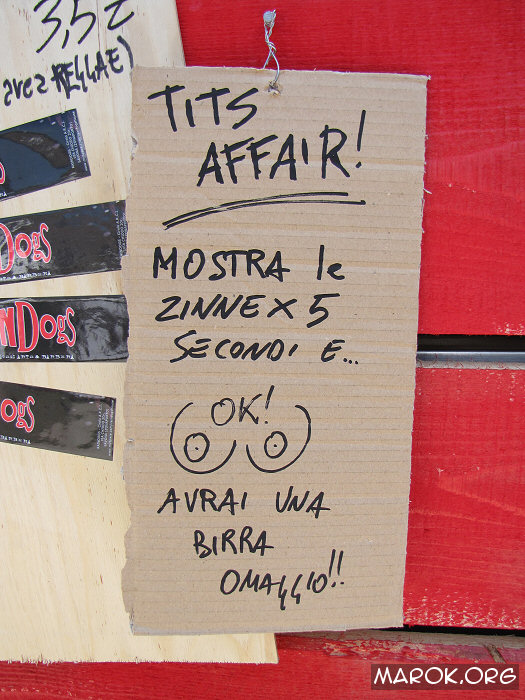 3,5€
REGGAE)
TITS
AFFAIR!
MOSTRA le
ZINNE X 5
SECONDI E...
OK!
AVRAI UNA
BIRRA
OMAGGIO!!
Dogs
NDogs
ogs
MAROK.ORG